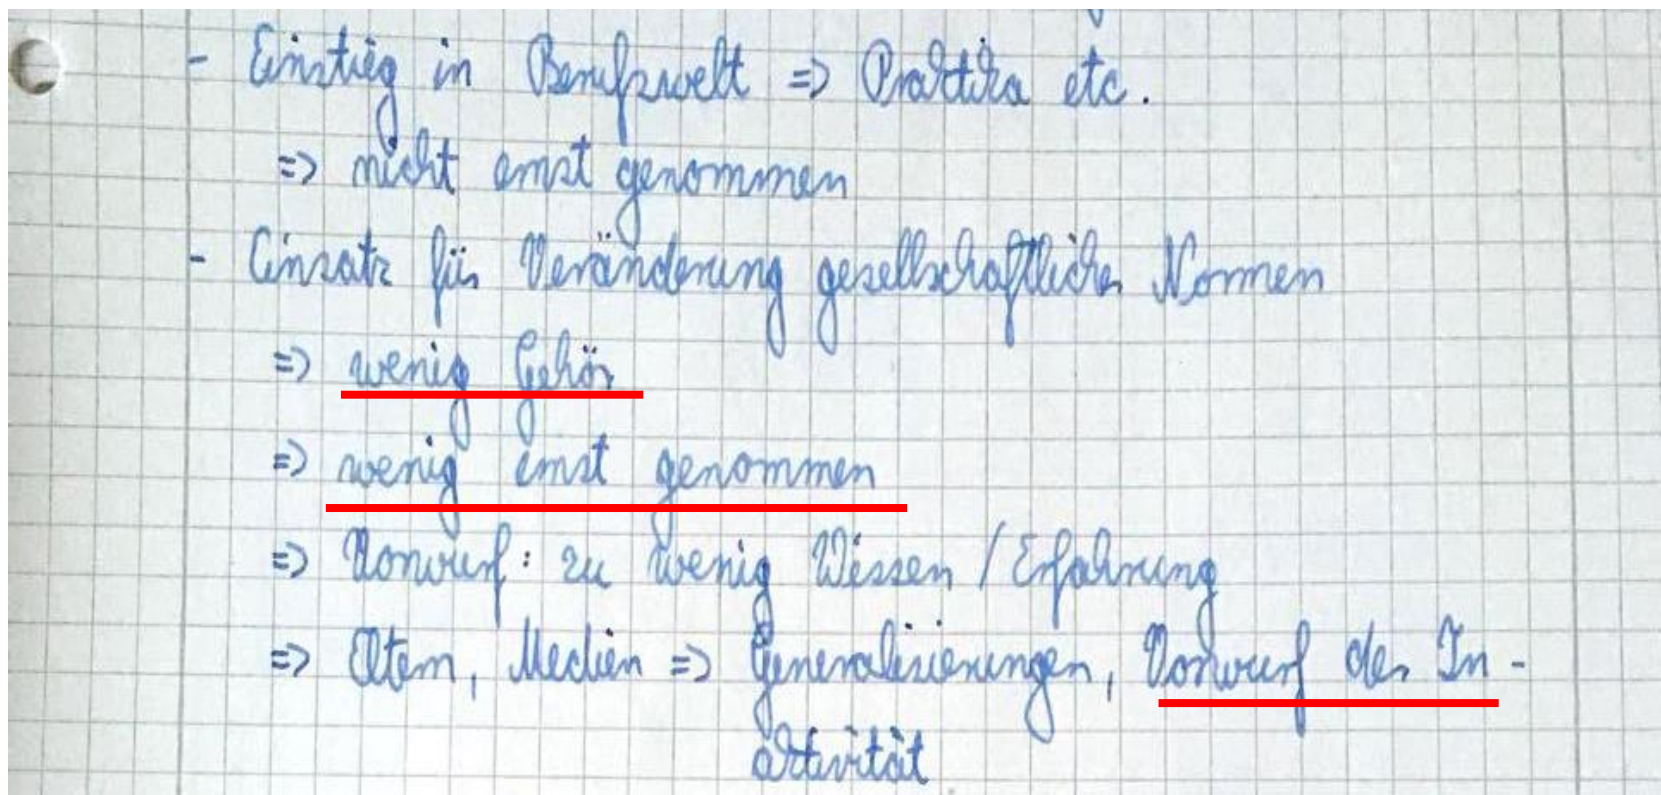 - Einstieg in Berufswelt => Praktika etc.
=> nicht ernst genommen
- Einsatz für Veränderung gesellschaftlicher Normen
=> wenig Gehör
=> wenig ernst genommen
=> Vorwurf: zu wenig Wissen / Erfahrung
=> Eltern, Medien => Generalisierungen, Vorwurf der In-
aktivität